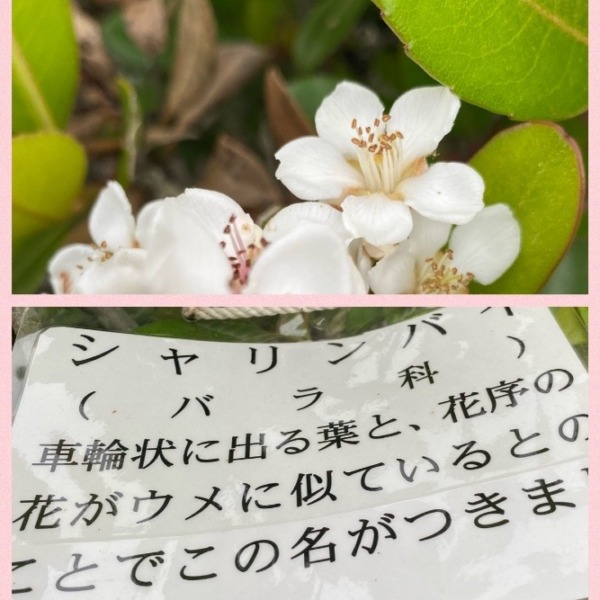 シャリンバイ
（バラ科）
車輪状に出る葉と、花序の
花がウメに似ているとの
ことでこの名がつきまし